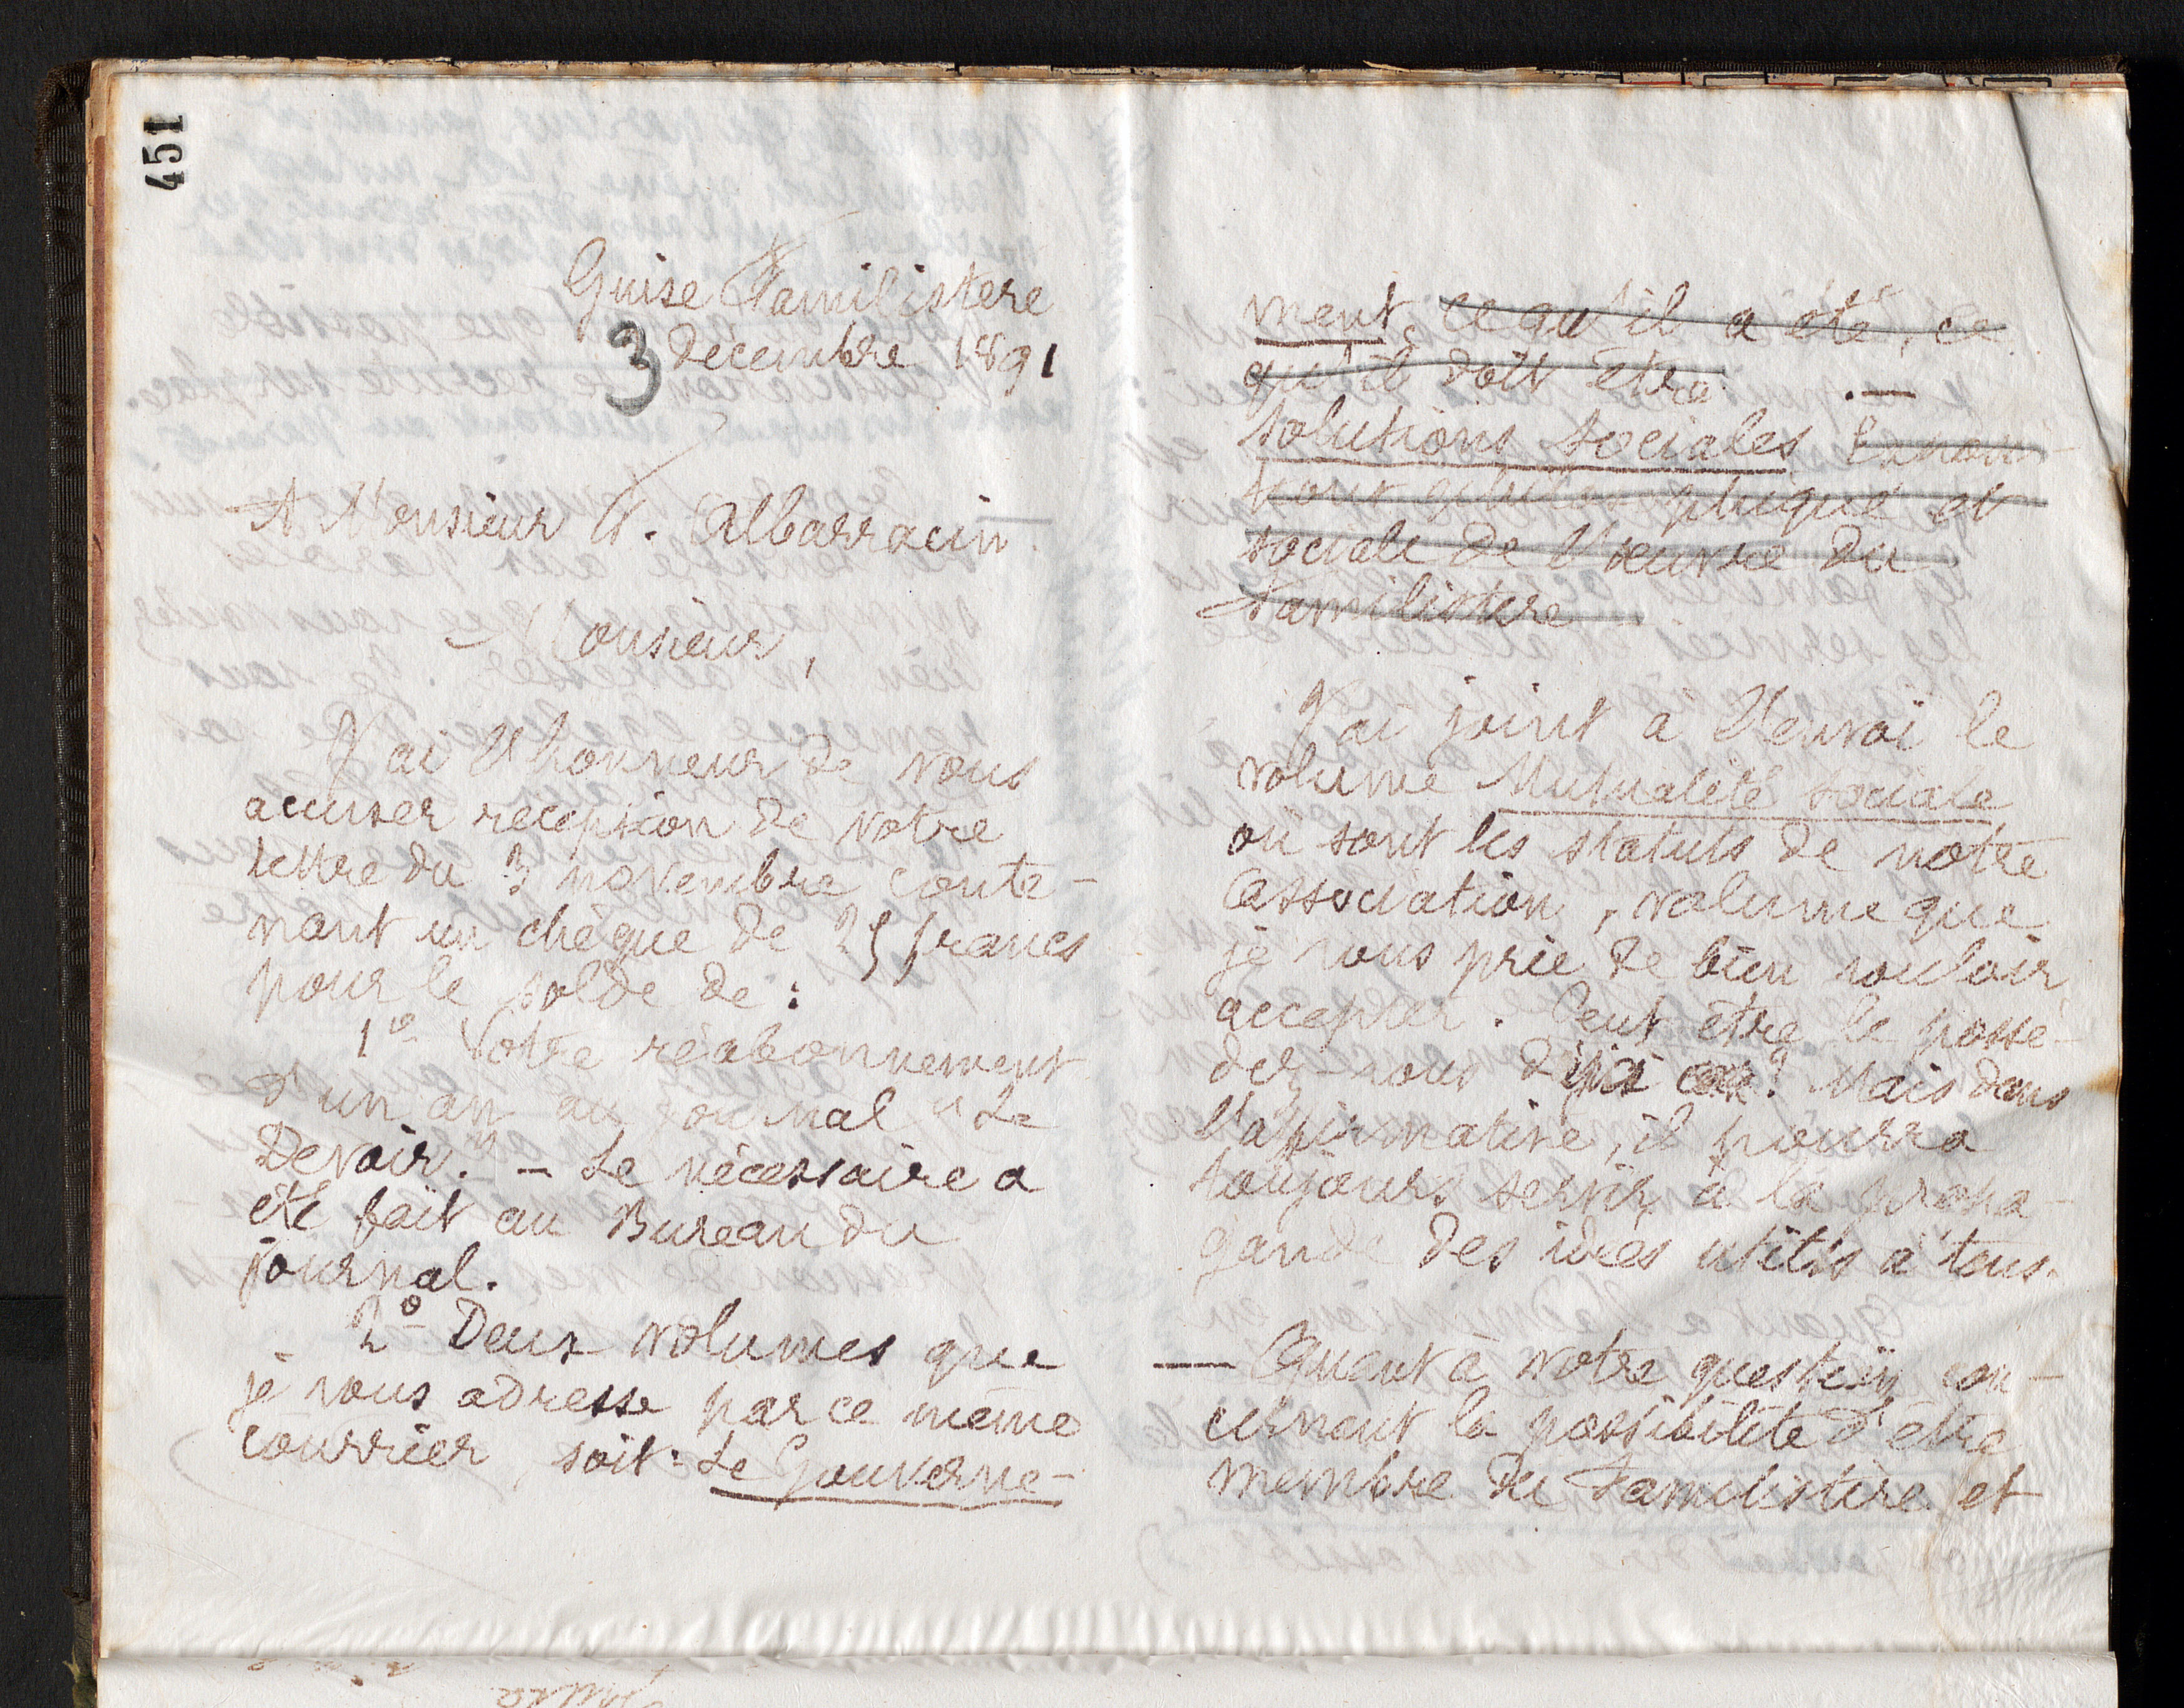 451
Guise Familistere
3 décembre 1891
A Monsieur A. Albarracin
Monsieur,
J'ai l'honneur de vous
accuser réception de votre
lettre du 3 novembre conte-
nant un chèque de 25 francs
pour le solde de :
1º Votre réabonnement
d'un an au journal "Le
Devoir." - Le nécessaire a
été fait au Bureau du
journal.
2º Deux volumes que
je vous adresse par ce même
courrier, soit : Le Gouverne-
ment, ce qu'il a été, ce
qu'il doit être. —
Solutions sociales
philosophique et
sociale de l'œuvre du
Familistère
J'ai joint à l'envoi le
volume Mutualité sociale
où sont les statuts de notre
Association, volume que
je vous prie de bien vouloir
accepter. Peut être le possé-
dez-vous déjà ? Mais dans
l'affirmative, il pourra
toujours servir à la propa-
gande des idées utiles à tous.
— Quant à votre question con-
cernant la possibilité d'être
membre du Familistère et